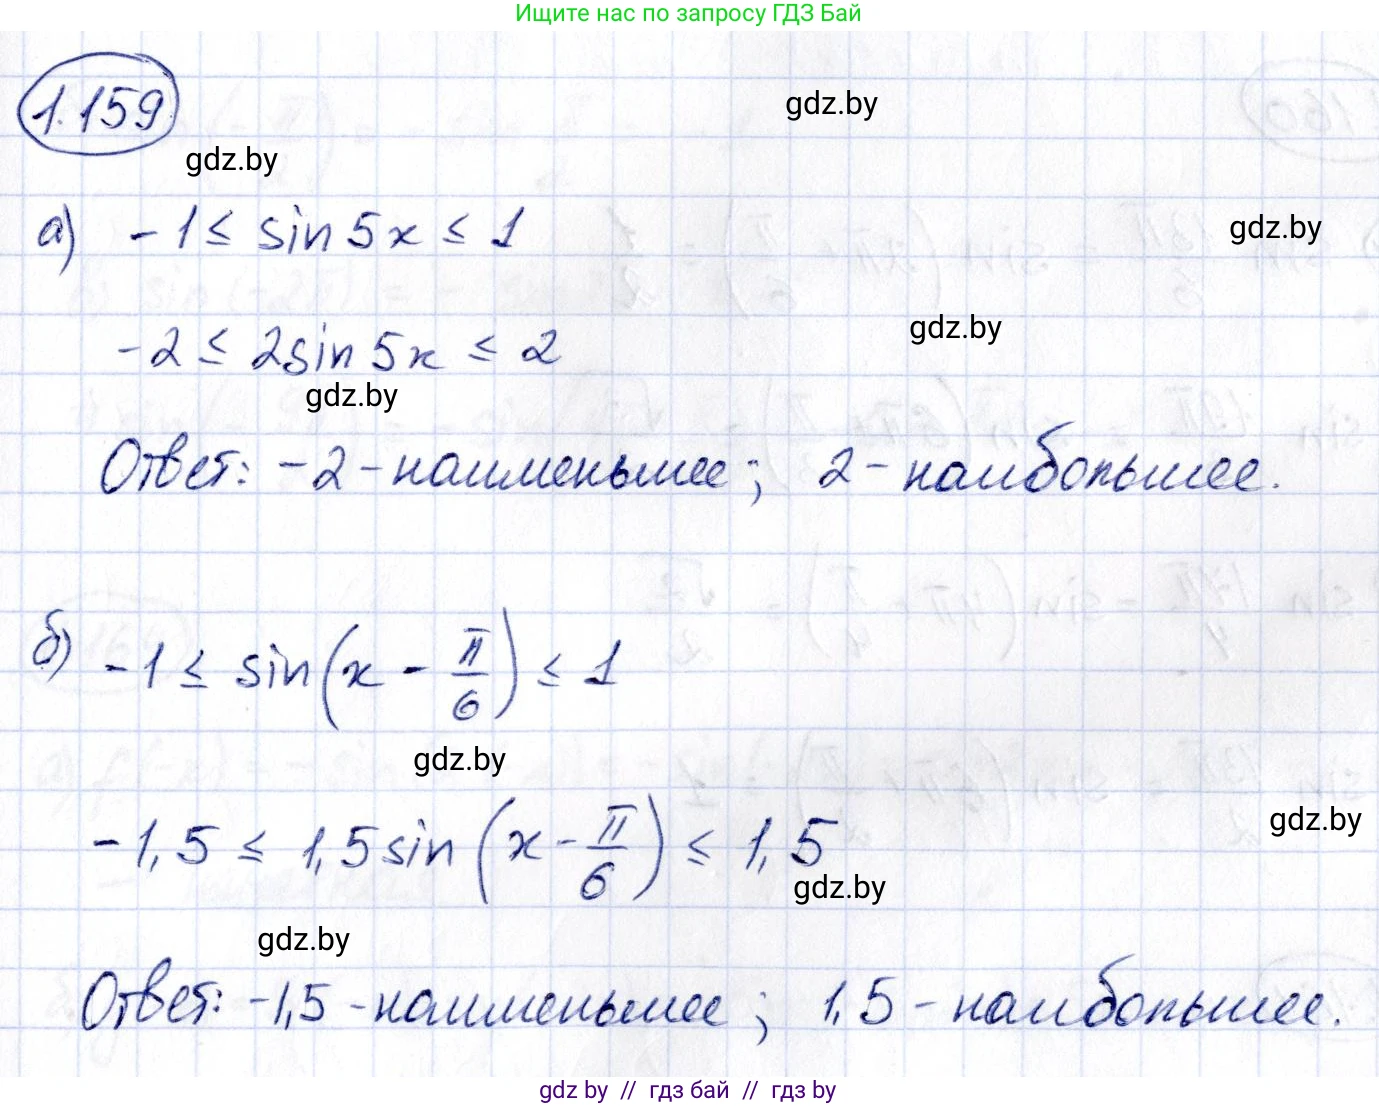 Ищите нас по запросу ГДЗ Бай
1.159
gdz.by
gdz.by
а) -1 ≤ sin 5x ≤ 1
gdz.by
gdz.by
-2 ≤ 2sin 5x ≤ 2
gdz.by
Ответ: -2 - наименьшее; 2 - наибольшее.
б) -1 ≤ sin(x - π/6) ≤ 1
gdz.by
gdz.by
-1,5 ≤ 1,5 sin(x - π/6) ≤ 1,5
gdz.by
gdz.by
Ответ: -1,5 - наименьшее; 1,5 - наибольшее.
gdz by // гдз бай // гдз by